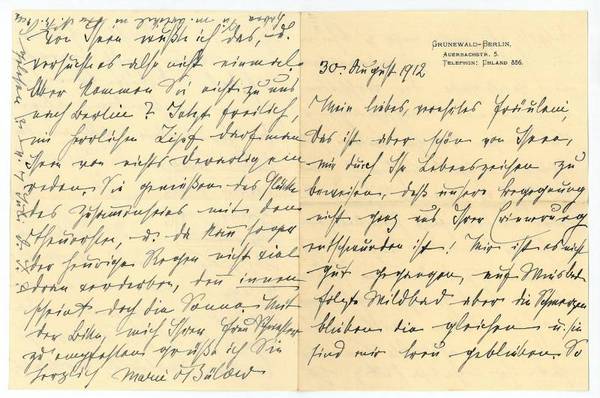 GRUNEWALD-BERLIN,
AUERBACHSTR. 5.
TELEPHON: UHLAND 886.
30. August 1912
Mein liebes, verehrtes Fräulein,
das ist aber schön von Ihnen,
mir durch Ihr Lebenszeichen zu
beweisen, daß unsere Begegnung
nicht ganz aus Ihrer Erinnerung
entschwunden ist! Mir ist es nicht
gut gegangen, auf Wiesbad
folgte Wildbad aber die Schmerzen
blieben die gleichen u. sie
sind mir treu geblieben. So
von Ihnen wußte ich das, u.
versuchte es also nicht einmal
Aber kommen Sie nicht zu uns
nach Berlin? Jetzt freilich,
im herrlichen darf man
Ihnen von nichts derartigem
reden Sie genießen das Glück
des Zusammenseins mit den
u. da kann sogar
der heurige Regen nicht viel
daran verderben, denn innen
scheint doch die Sonne. Mit
der Bitte, mich Ihrer Frau
zu empfehlen grüße ich Sie
herzlich Marie v Bülow